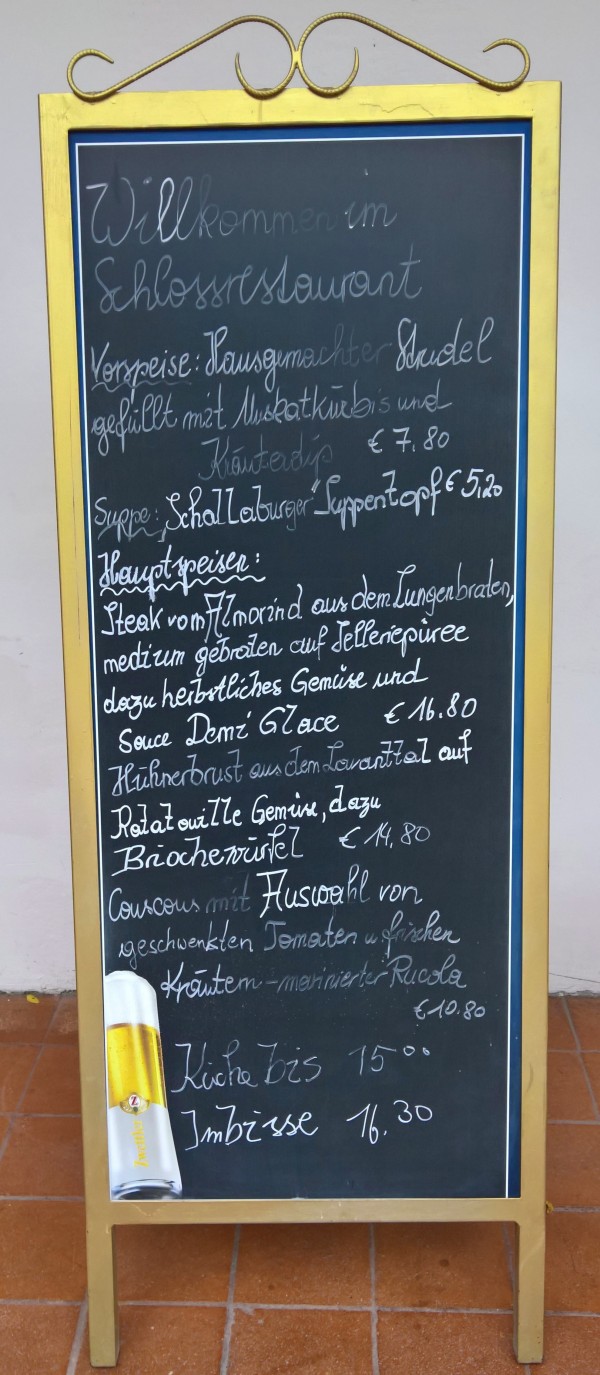 Willkommen im
Schlossrestaurant
Vorspeise: Hausgemachter Strudel
gefüllt mit Muskatkürbis und
Kräuterdip € 7.80
Suppe: „Schallaburger“ Suppentopf € 5,20
Hauptspeisen:
Steak vom Almorind aus dem Lungenbraten,
medium gebraten auf Selleriepüree
dazu herbstliches Gemüse und
Souce Demi' Glace € 16.80
Hühnerbrust aus dem Lavanttal auf
Ratatouille Gemüse, dazu
Briochewürfel € 14,80
Couscous mit Auswahl von
geschwenkten Tomaten u. frischen
Kräutern - marinierter Rucola
€ 10.80
Küche bis 15⁰⁰
Imbisse 16.30
Z
Zwettler